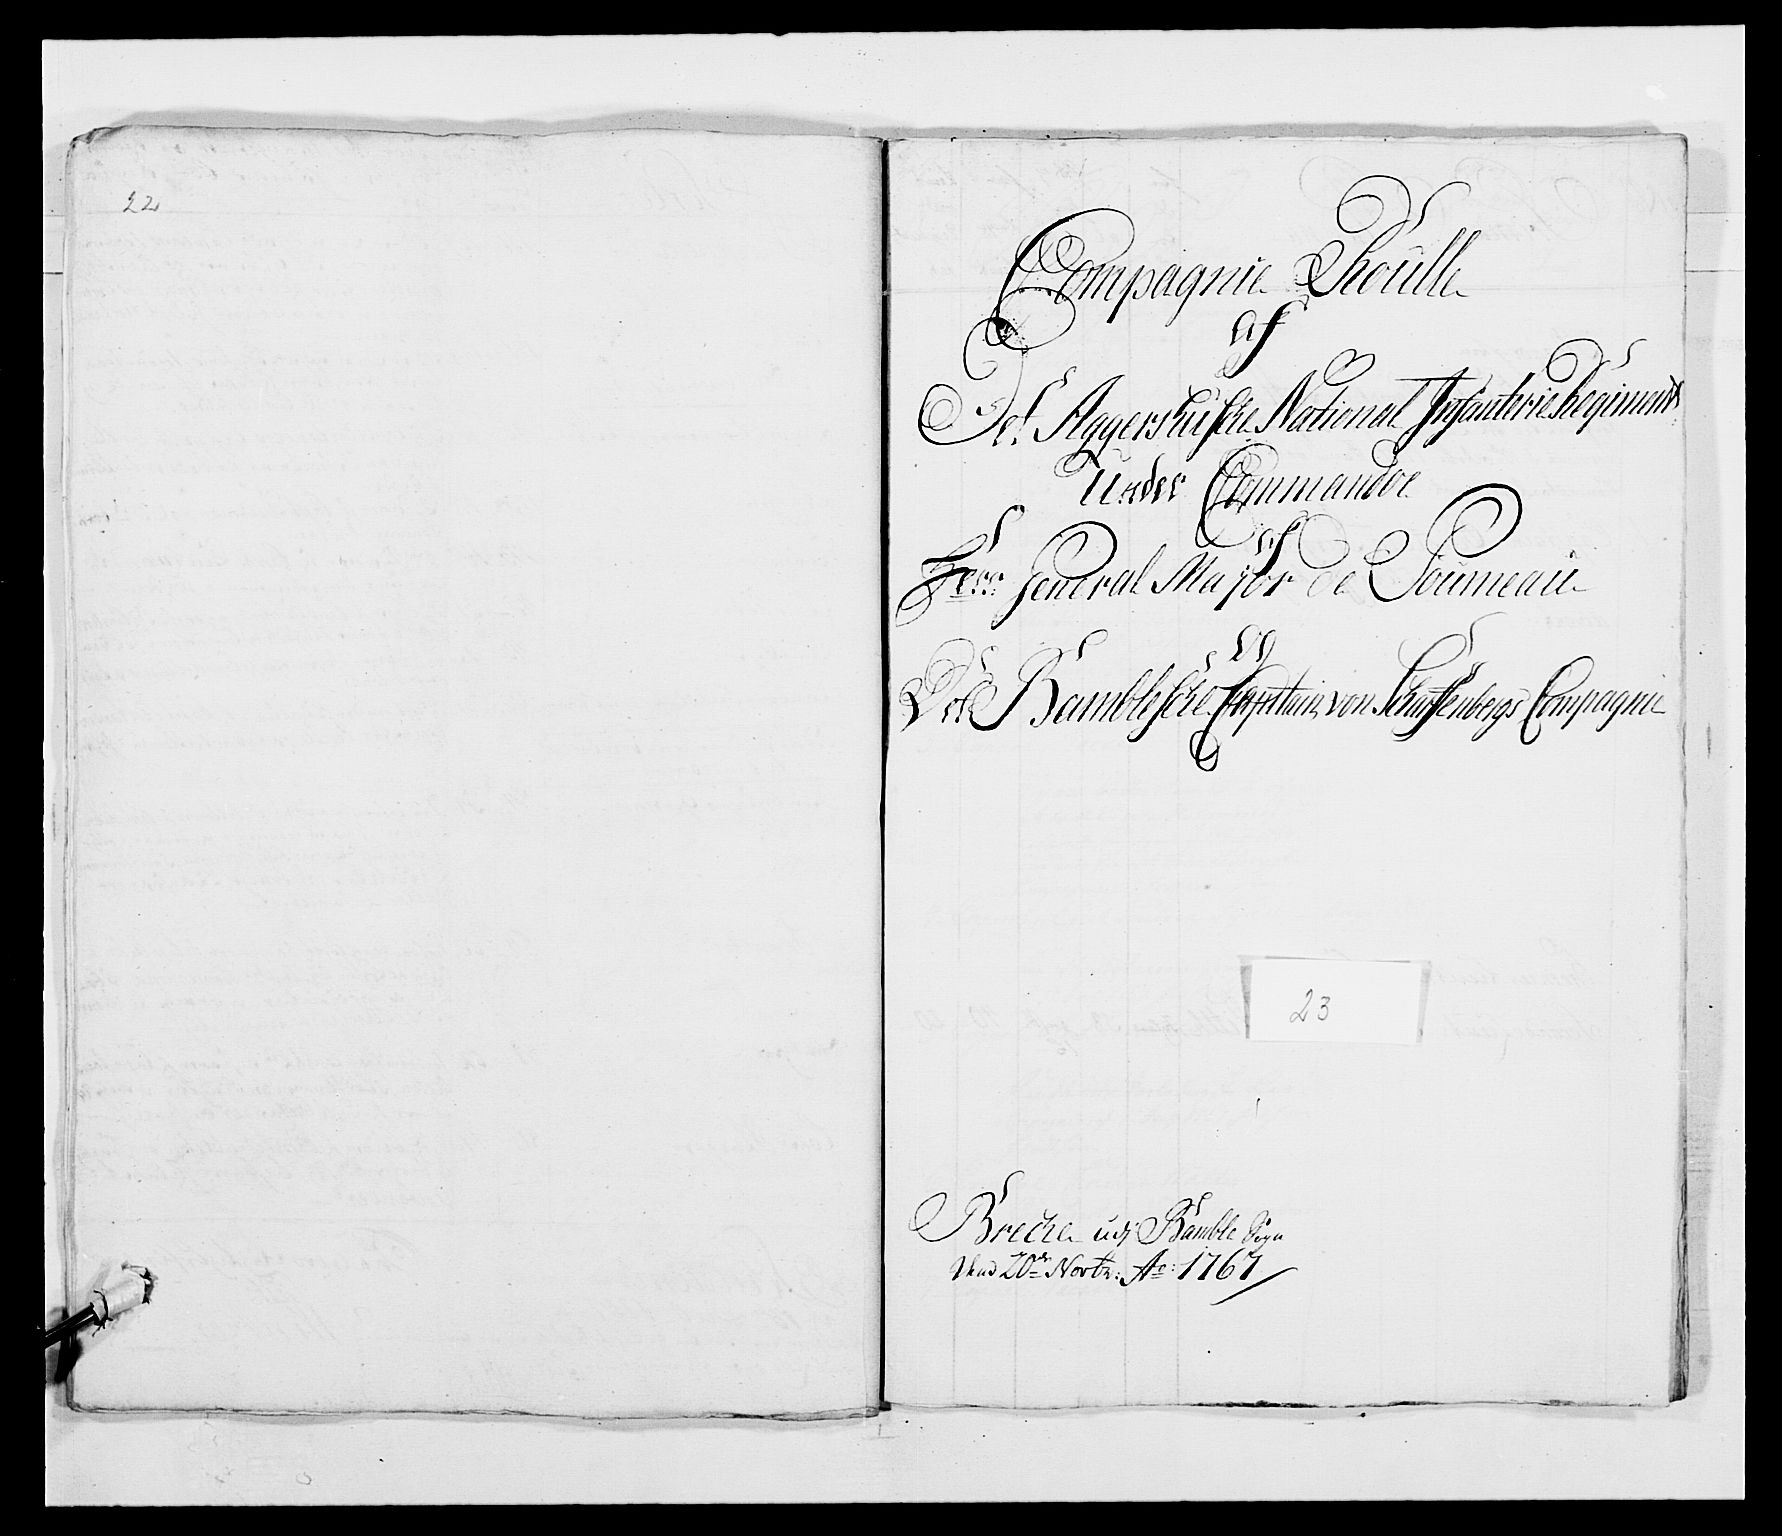 22
Compagnie Roulle
af
Det Aggershusiske National Infanterie Regiment
Under Commandoe
af
Herr: General Major de Soumeau
og
Det Bamblesche Capitain von Scharffenbergs Compagnie
23
Brecke udj Bamble Sogn
dend 20de Novbr: Ao: 1767